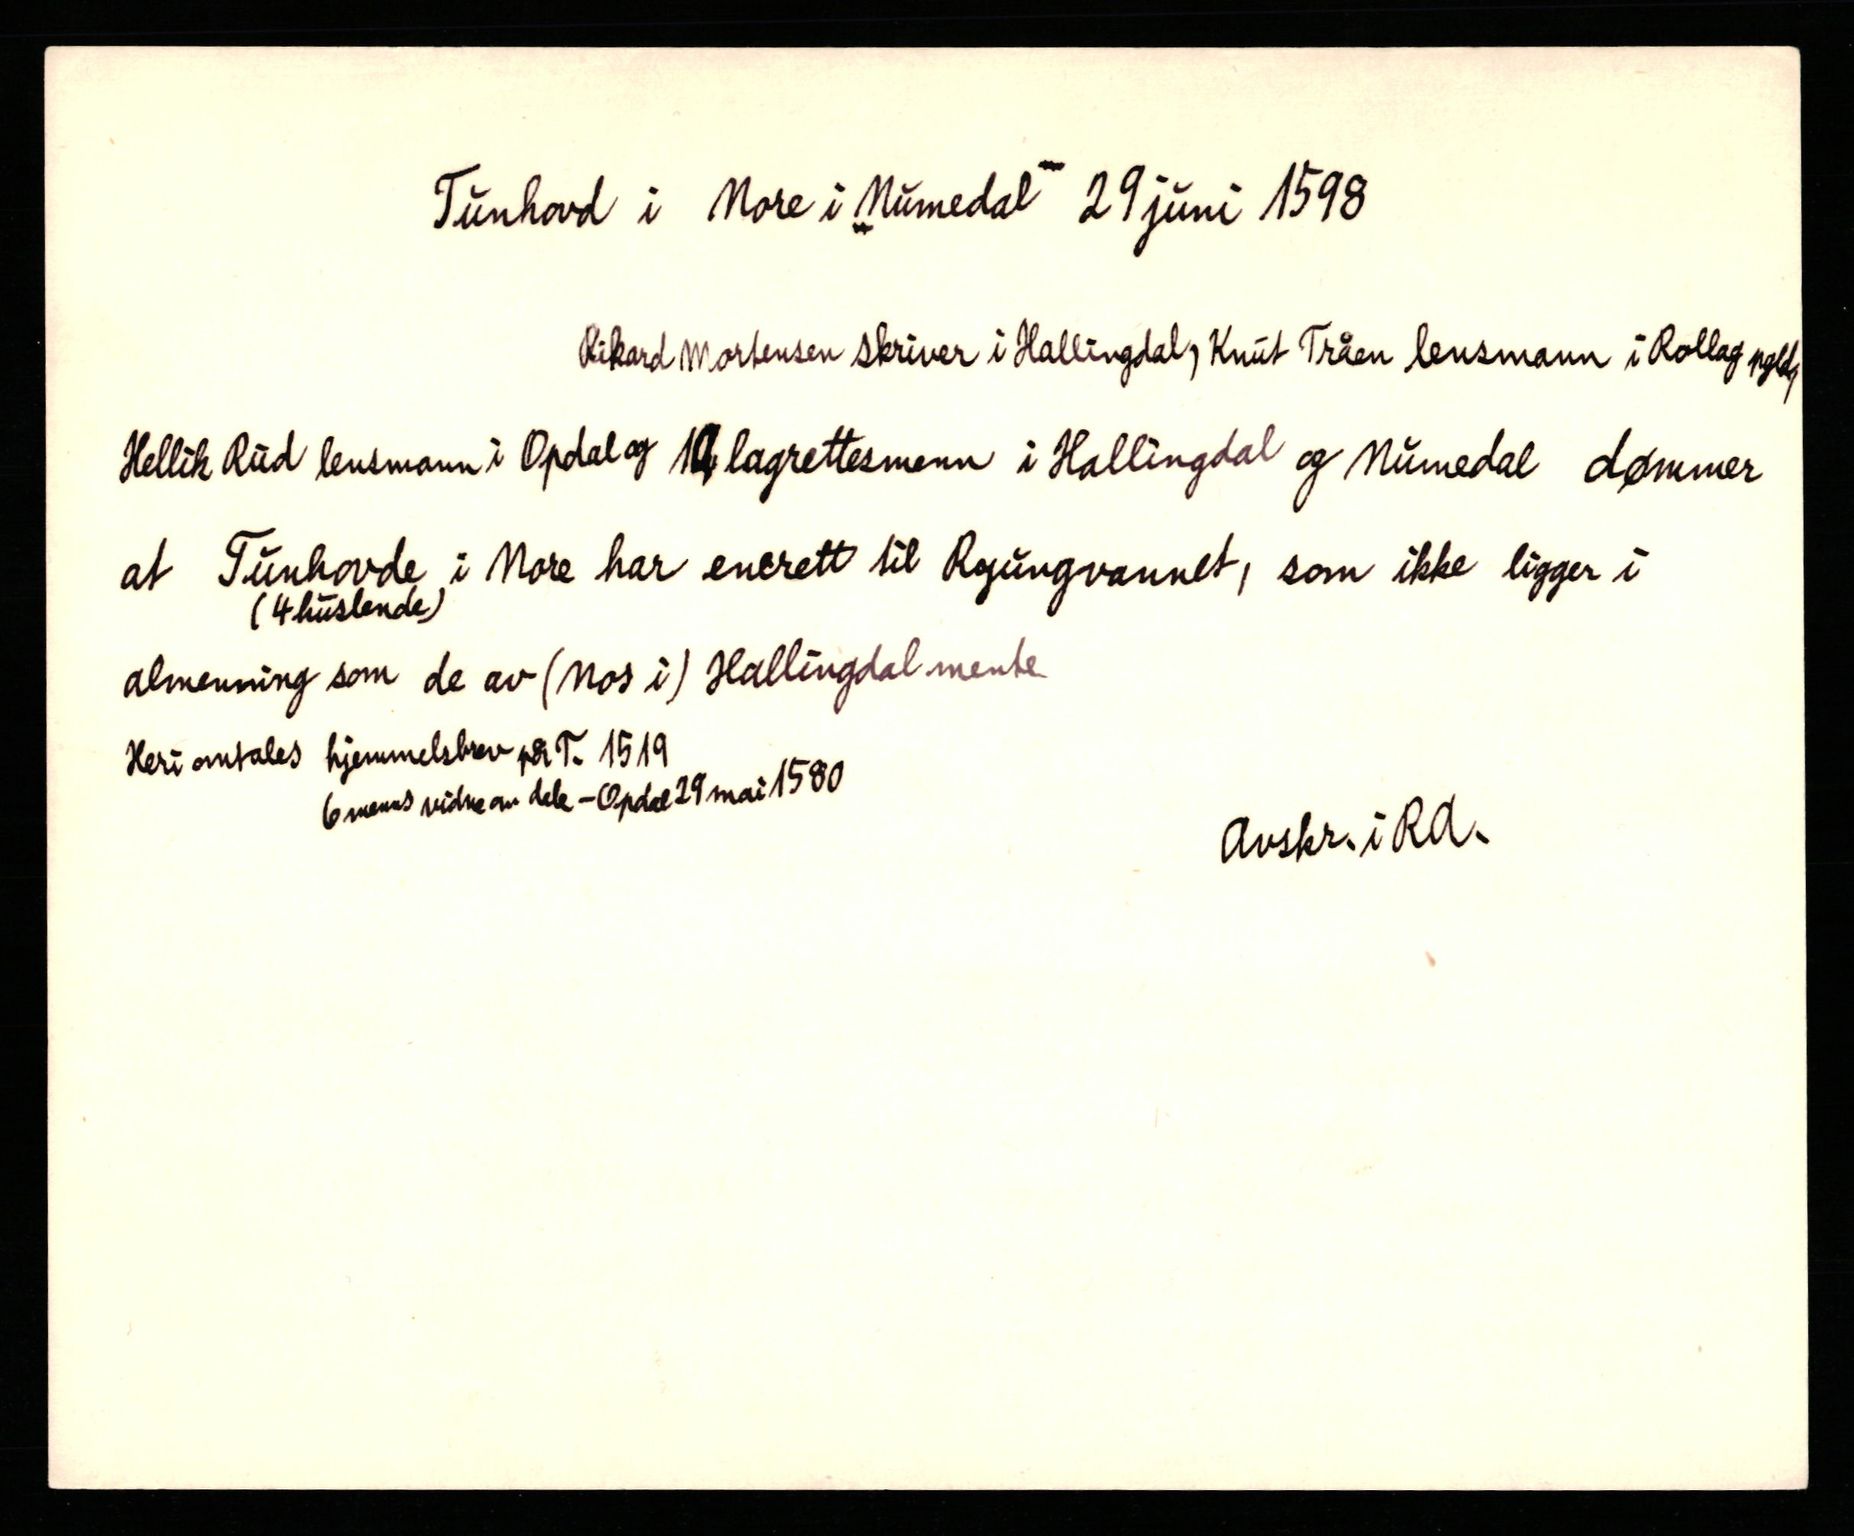 Tunhovd i Nore i "Numedal" 29 juni 1598
Rikard Mortensen skriver i Hallingdal, Knut Tråen lensmann i Rollag pgld,
Hellik Rud lensmann i Opdal og lagrettesmenn i Hallingdal og Numedal dømmer
at Tunhovde i Nore har enerett til Rgungvannet, som ikke ligger i
(4 huslende)
almenning som de av (Nos i) Hallingdal mente
Heri omtales hjemmelsbrev på T. 1519
6 menns vidne om dele - Opdal 29 mai 1580
Avskr. i RA.